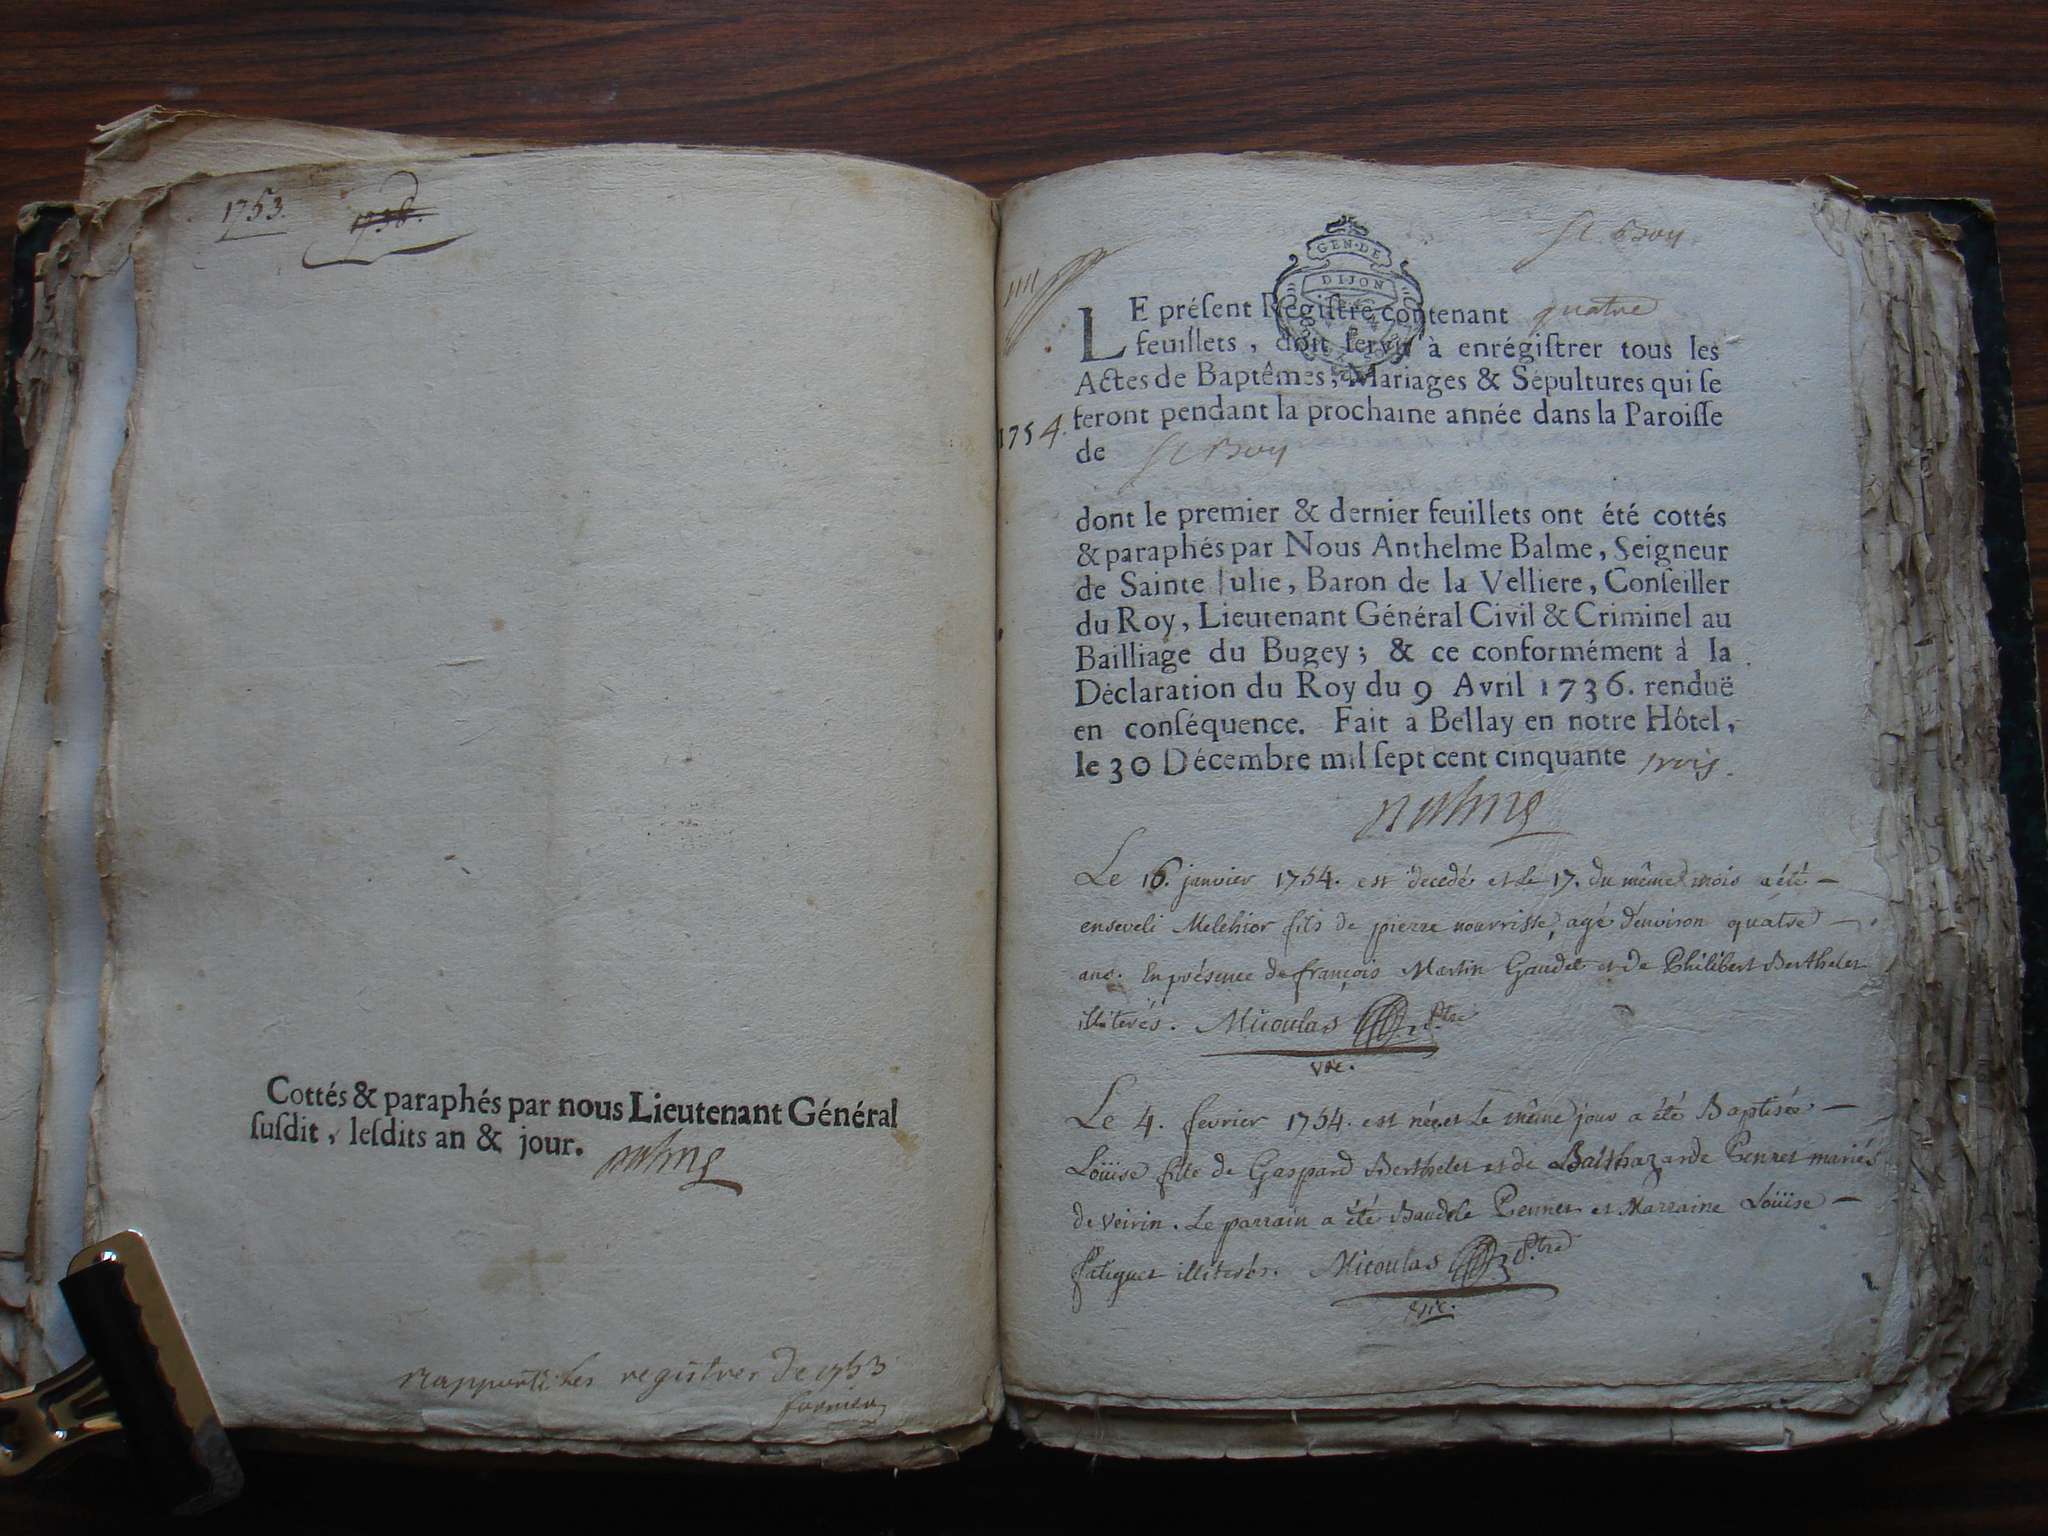 1753. 1738.
Cottés & paraphés par nous Lieutenant Général
ſuſdit, leſdits an & jour. Balme
Rapporté les registres de 1753
St Boy
GEN·DE
DIJON
LE préſent Régiſtre contenant quatre
feuillets, doit ſervir à enrégiſtrer tous les
Actes de Baptêmes, Mariages & Sépultures qui ſe
1754. feront pendant la prochaine année dans la Paroiſſe
de St Boy
dont le premier & dernier feuillets ont été cottés
& paraphés par Nous Anthelme Balme, Seigneur
de Sainte Julie, Baron de la Velliere, Conſeiller
du Roy, Lieutenant Général Civil & Criminel au
Bailliage du Bugey; & ce conformément à la
Déclaration du Roy du 9 Avril 1736. renduë
en conſéquence. Fait a Bellay en notre Hôtel,
le 30 Décembre mil ſept cent cinquante trois.
Balme
Le 16. janvier 1754. est decedé et le 17. du même mois a été
enseveli Melchior fils de pierre nourrisse, agé d'environ quatre
ans. En présence de françois Martin Gaudet et de Philibert Berthelet
illiterés. Micoulas Ptre
vic.
Le 4. fevrier 1754. est née, et le même jour a été Baptisée
Loüise fille de Gaspard Berthelet et de Balthazarde Pennet mariés
de Veirin. Le parrain a été Baudile Pennet et Marraine Loüise
Fatiguet illiterés. Micoulas Ptre
vic.